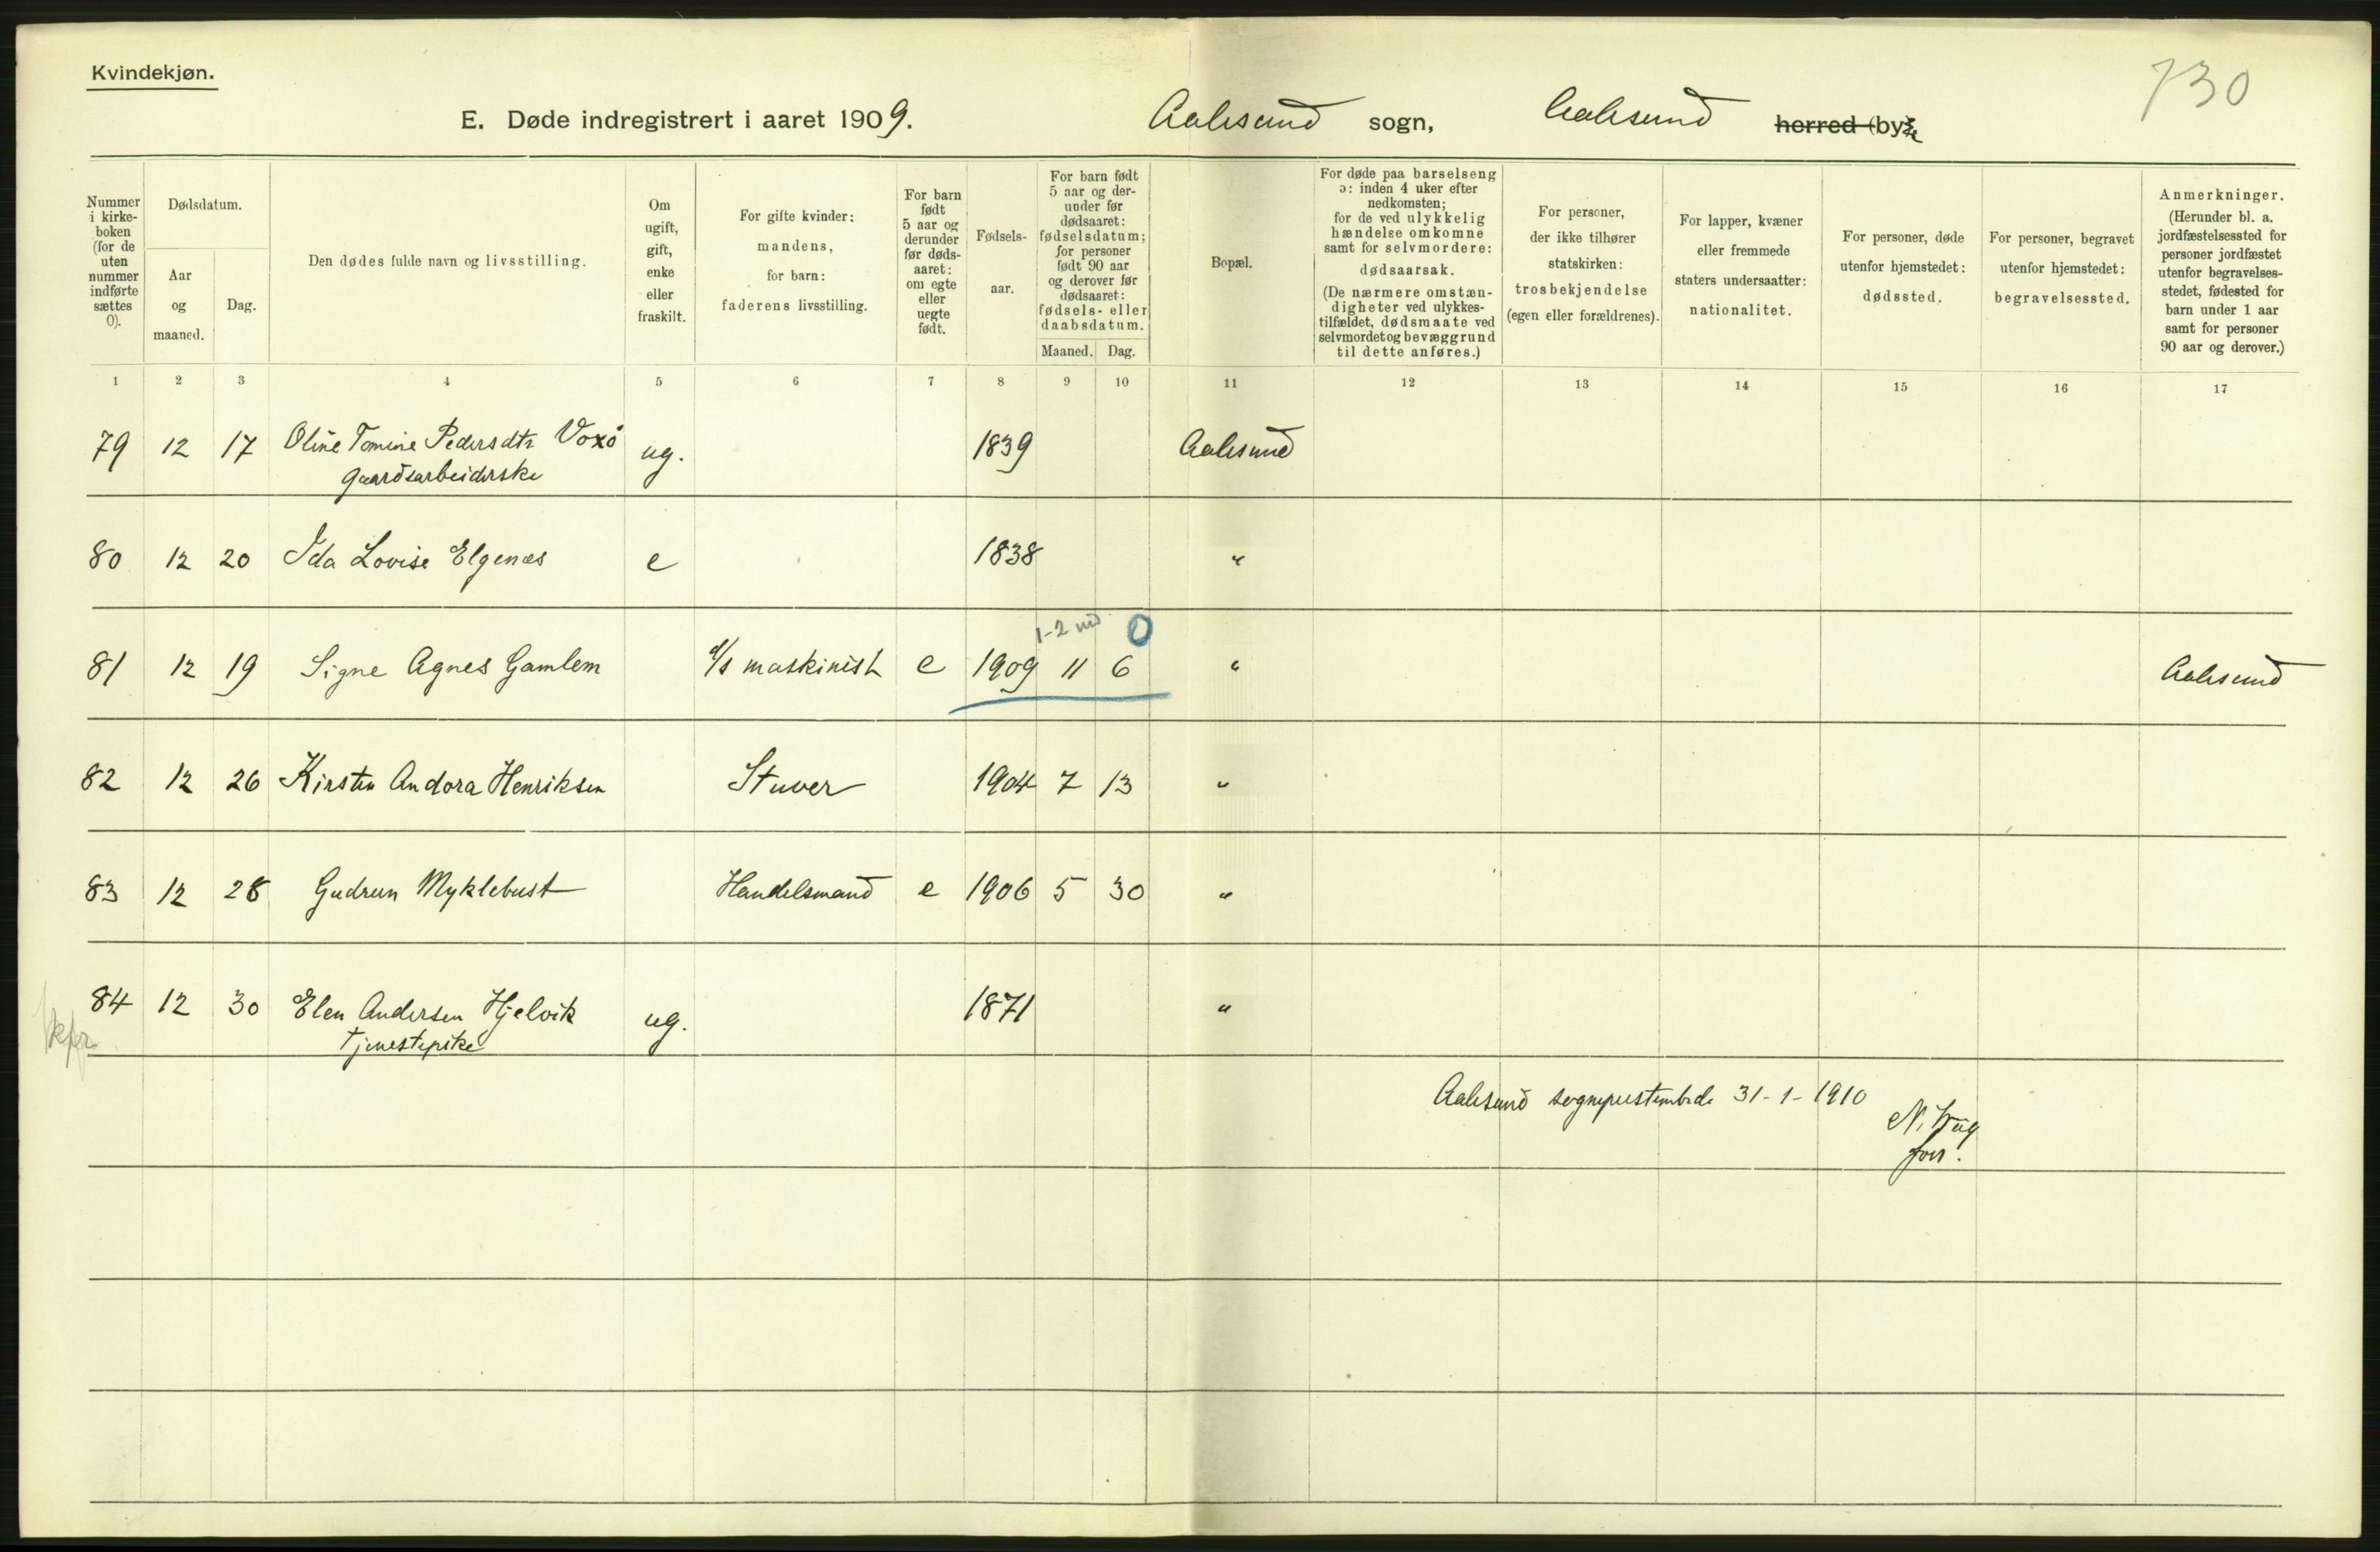 Kvindekjøn.
730
E. Døde indregistrert i aaret 1909. Aalesund sogn, Aalesund herred (by).
Nummer i kirkeboken (for de uten nummer indførte sættes 0).
Dødsdatum.
Aar og maaned.
Dag.
Den dødes fulde navn og livsstilling.
Om ugift, gift, enke eller fraskilt.
For gifte kvinder: mandens, for barn: faderens livsstilling.
For barn født 5 aar og derunder før dødsaaret: om egte eller uegte født.
Fødselsaar.
For barn født 5 aar og derunder før dødsaaret: fødselsdatum; for personer født 90 aar og derover før dødsaaret: fødsels- eller daabsdatum.
Maaned. Dag.
Bopæl.
For døde paa barselseng ɔ: inden 4 uker efter nedkomsten; for de ved ulykkelig hændelse omkomne samt for selvmordere: dødsaarsak. (De nærmere omstændigheter ved ulykkestilfældet, dødsmaate ved selvmordet og bevæggrund til dette anføres.)
For personer, der ikke tilhører statskirken: trosbekjendelse (egen eller forældrenes).
For lapper, kvæner eller fremmede staters undersaatter: nationalitet.
For personer, døde utenfor hjemstedet: dødssted.
For personer, begravet utenfor hjemstedet: begravelsessted.
Anmerkninger. (Herunder bl. a. jordfæstelsessted for personer jordfæstet utenfor begravelsesstedet, fødested for barn under 1 aar samt for personer 90 aar og derover.)
1 2 3 4 5 6 7 8 9 10 11 12 13 14 15 16 17
79 12 17 Oline Tomine Pedersdtr Voxö ug. 1839 Aalesund
gaardsarbeiderske
80 12 20 Ida Lovise Elgenæs e 1838 "
1-2 md 0
81 12 19 Signe Agnes Gamlem d/s maskinist e 1909 11 6 " Aalesund
82 12 26 Kirsten Andora Henriksen Stuver 1904 7 13 "
83 12 28 Gudrun Myklebust Handelsmand e 1906 5 30 "
84 12 30 Elen Andersen Hjelvik ug. 1871 "
Tjenestepike
Aalesund sogneprestembede 31-1-1910